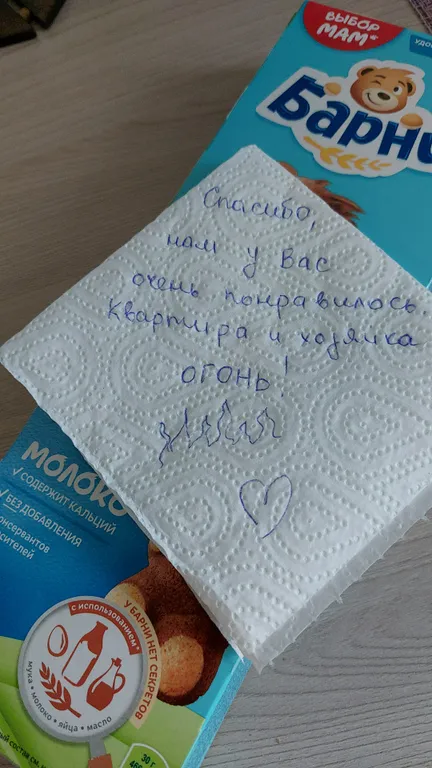 ВЫБОР
МАМ*
Барни
Спасибо,
нам у Вас
очень понравилось.
Квартира и хозяйка
ОГОНЬ!
МОЛОКО
√ СОДЕРЖИТ КАЛЬЦИЙ
√ БЕЗ ДОБАВЛЕНИЯ
консервантов
С ИСПОЛЬЗОВАНИЕМ*
мука • молоко • яйца • масло
У БАРНИ НЕТ СЕКРЕТОВ
30 г